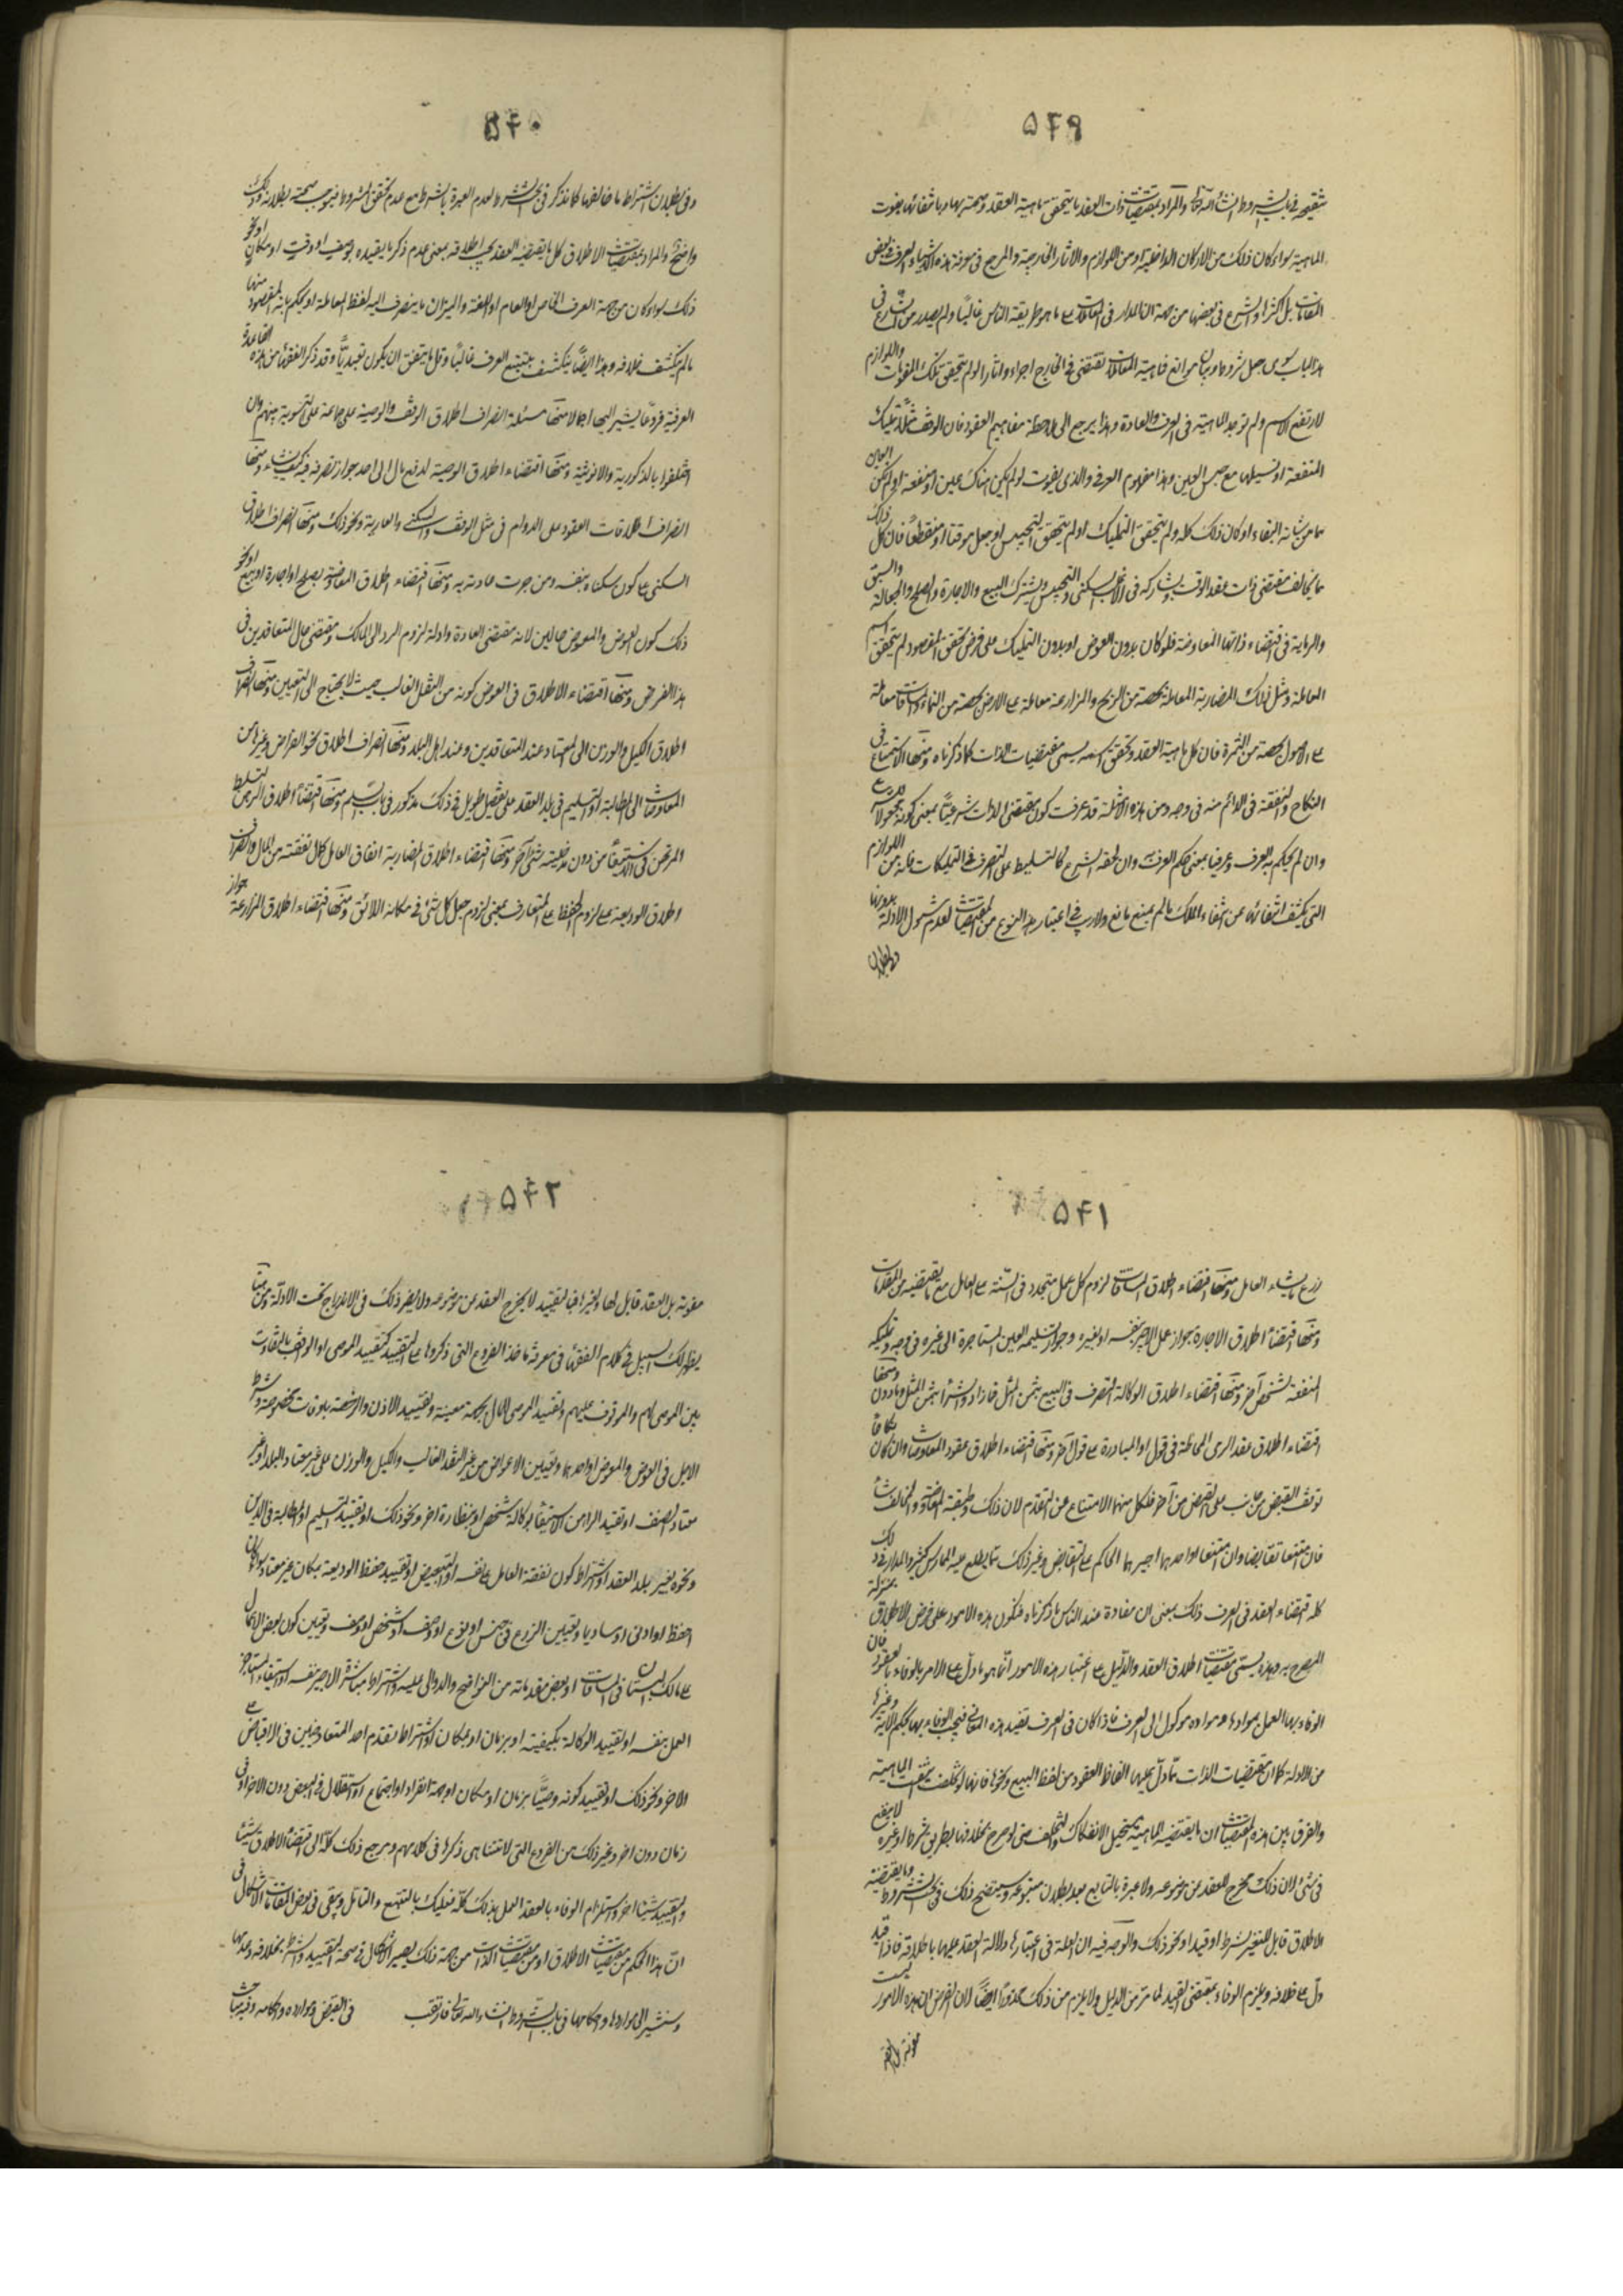 ۵۳۹
تنقيحه فی باب الشروط انشاء الله تعالی والمراد بمقتضيات ذات العقد ما يتحقق ماهية العقد وصحته بها وبانتفائها يفوت
الماهية سواء كان ذلك من الاركان الداخلية او من اللوازم والاثار الخارجية والمرجع فی معرفة هذه الاشياء العرف فی بعض
المقامات بل اكثرها والشرع فی بعضها من جهة ان المدار فی المعاملات علی ما هو طريقة الناس غالبا ولم يصدر من الشارع فی
هذا الباب سوی جعل شروط وبيان موانع فماهية المعاملات تقتضی فی الخارج اجزاء واثارا لو لم يتحقق تلك المقومات واللوازم
لارتفع الاسم ولم توجد الماهية فی العرف والعادة وهذا يرجع الی ملاحظة مفاهيم العقود فان الوقف مثلا تمليك
المنفعة او تسبيلها مع حبس العين وهذا مفهوم العرفی والذی يفوت لو لم يكن هناك عين او منفعة او لم يكن العين
مما من شانه البقاء او كان ذلك كله ولم يتحقق التمليك او لم يتحقق التحبيس او جعل موقتا او منقطعا فان كل ذلك
مما يخالف مقتضی ذات عقد الوقف ويشاركه فی الاغلب السكنی والتحبيس ويشترك البيع والاجارة والصلح والجعالة والسبق
والرماية فی اقتضاء ذاتها المعاوضة فلو كان بدون العوض او بدون التمليك علی فرض تحقق المقصود لم يتحقق اسم
المعاملة ومثل ذلك المضاربة المعاملة بحصة من الربح والمزارعة معاملة علی الارض بحصة من النماء والمساقاة معاملة
علی الاصول بحصة من الثمرة فان كل ماهية العقد وتحقق اسمه يسمی مقتضيات الذات كما ذكرناه ومنها الاستمتاع فی
النكاح والنفقة فی الدائم منه فی وجه ومن هذه الامثلة قد عرفت كون مقتضی الذات شرعيا بمعنی كونه مجعولا
وان لم يحكم به العرف وعرفيا بمعنی حكم العرف به وان لحقه الشرع كالتسليط علی التصرف فی التمليكات فانه من اللوازم
التی يكشف انتفائها عن انتفاء الملك ما لم يمنع مانع ولا ريب فی اعتبار هذا النوع من المقتضيات لعدم شمول الادلة بدونها
وفی بطلان
۵۴۰
وفی بطلان اشتراط ما خالفها كما نذكر فی بحث الشروط لعدم العبرة بالشرط مع عدم تحقق المشروط فيوجب صحته بطلانه وذلك
واضح والمراد بمقتضيات الاطلاق كل ما يقتضيه العقد بحسب اطلاقه بمعنی عدم ذكر ما يقيده بوصف او وقت او مكان او نحو
ذلك سواء كان من جهة العرف الخاص او العام او اللغة والميزان ما ينصرف اليه لفظ المعاملة او يحكم بانه المقصود منها
ما لم ينكشف خلافه وهذا ايضا ينكشف بتتبع العرف غالبا وقل ما يتفق ان يكون تعبديا وقد ذكر الفقهاء من هذه القاعدة
العرفية فروعا يشير اليها اجمالا منها مسئلة انصراف اطلاق الوقف والوصية علی جماعة علی التسوية بينهم وان
اختلفوا بالذكورية والانوثية ومنها اقتضاء اطلاق الوصية لدفع مال الی احد جواز تصرفه فيه كيف شاء ومنها
انصراف اطلاقات العقود علی الدوام فی مثل الوقف والسكنی والعارية ونحو ذلك ومنها انصراف اطلاق
السكنی علی كون سكناه بنفسه ومن جرت عادته به ومنها اقتضاء اطلاق المعاوضة بصلح او اجارة او بيع او نحو
ذلك كون العوض والمعوض حالين لانه مقتضی العادة وادلة لزوم الرد الی المالك ومقتضی حال المتعاقدين فی
هذا الفرض ومنها اقتضاء الاطلاق فی العوض كونه من النقد الغالب حيث لا يحتاج الی التعيين ومنها انصراف
اطلاق الكيل والوزن الی المعتاد عند المتعاقدين وعند اهل البلد ومنها انصراف اطلاق نحو القراض وغيره من
المعاوضات الی المطالبة او التسليم فی بلد العقد علی تفصيل طويل فی ذلك مذكور فی باب السلم ومنها اقتضاء اطلاق الرهن تسلط
المرتهن فی الاستيفاء من دون مدخلية شیء آخر ومنها اقتضاء اطلاق المضاربة انفاق العامل كمال نفقته من المال وانصراف
اطلاق الوديعة علی لزوم الحفظ علی المتعارف بمعنی لزوم جعل كل شیء فی مكانه اللائق ومنها اقتضاء اطلاق المزارعة جواز
۵۴۱
زرع ما يشاء العامل ومنها اقتضاء اطلاق المساقات لزوم كل عمل متجدد فی السنة علی العامل مع ما يقتضيه من المقدمات
ومنها اقتضاء اطلاق الاجارة جواز عمل الاجير بنفسه او بغيره وجواز تسليمه العين المستاجرة الی غيره فی وجه وتمليكه
المنفعة لشخص آخر ومنها اقتضاء اطلاق الوكالة التصرف فی البيع بثمن المثل فما زاد والشراء بثمن المثل وما دون ومنها
اقتضاء اطلاق عقد الرمی المحاطة فی قول او المبادرة علی قول آخر ومنها اقتضاء اطلاق عقود المعاوضات وان كان نكاحا
توقف القبض من جانب علی القبض من آخر فلكل منهما الامتناع عن التقدم لان ذلك وظيفة المعاوضة والمخالفة
فان امتنعا تقابضا وان امتنعا او احدهما اجبرهما الحاكم علی التقابض وغير ذلك مما يطلع عليه الممارس كثير والمدار فی ذلك
كله اقتضاء العقد فی العرف ذلك بمعنی ان مفاده عند الناس ما ذكرناه فتكون هذه الامور علی فرض الاطلاق بمنزلة
المصرح به وهذه يسمی مقتضيات اطلاق العقد والدليل علی اعتبار هذه الامور انما هو ما دل علی الامر بالوفاء بالعقود فان
الوفاء بها العمل بموادها وموادها موكول الی العرف فاذا كان فی العرف تفيد هذه المعانی فيجب الوفاء بها بحكم الاية وغيرها
من الادلة كما ان مقتضيات الذات مما دل عليها الفاظ العقود من لفظ البيع ونحوه فانها لو تخلفت ينتفی الماهية
والفرق بين هذه المقتضيات ان ما يقتضيه الماهية يستحيل الانفكاك والتخلف حتی لو صرح بخلافها بطريق شرط او غيره لا ينفع
فی شیء لان ذلك مخرج للعقد عن موضوعه ولا عبرة بالتابع بعد بطلان متبوعه وسيتضح ذلك فی بحث الشروط وما يقتضيه
الاطلاق قابل للتغير بشرط او قيد او نحو ذلك والوجه فيه ان العلة فی اعتبارها دلالة العقد عليها باطلاقه فاذا قيد
دل علی خلافه ويلزم الوفاء بمقتضی القيد لما مر من الدليل ولا يلزم من ذلك محذورا ايضا لان الفرض ان هذه الامور ليست
مقومة بل العقد
۵۴۲
مقومة بل العقد قابل لها ولغيرها فالتقييد لا يخرج العقد عن موضوعه ولا يضر ذلك فی الاندراج تحت الادلة ومن هنا
يظهر لك السبيل فی كلام الفقهاء فی معرفة ماخذ الفروع التی ذكروها علی التقييد كتقييد الموصی او الواقف بالتفاوت
بين الموصی لهم والموقوف عليهم وتقييد الموصی المال بجهة معينة وتقييد الاذن والرخصة باوقات مخصوصة وشرط
الاجل فی العوض والمعوض او احدهما وتعيين الاعواض من غير النقد الغالب والكيل والوزن علی غير معتاد البلد او غير
معتاد الصنف او تقييد الراهن الاستيفاء بوكالة شخص او بنظارة اخر ونحو ذلك او تقييد التسليم او المطالبة فی الدين
ونحوه بغير بلد العقد او اشتراط كون نفقة العامل علی نفسه او التبعيض او تقييد حفظ الوديعة بمكان غير معتاد سواء كان
احفظ او ادنی او مساويا وتعيين الزرع فی جنس او نوع او صنف او شخص او وصف وتعيين كون بعض الاعمال
علی مالك البستان فی المساقات او بعض مقدماته من النواضح والدوالی عليه واشتراط مباشرة الاجير بنفسه او استيفاء المستاجر
العمل بنفسه او تقييد الوكالة بكيفية او بزمان او بمكان او اشتراط تقدم احد المتعاوضين فی الاقباض علی
الاخر ونحو ذلك او تقييد كونه وصيا بزمان او مكان او جهة انفراد او اجتماع او استقلال فی البعض دون الاخر او فی
زمان دون اخر وغير ذلك من الفروع التی لا تتناهی ذكرها فی كلامهم ومرجع ذلك كله الی اقتضاء الاطلاق شيئا
والتقييد شيئا اخر واستلزام الوفاء بالعقد العمل بذلك كله فعليك بالتتبع والتامل وبقی فی بعض المقامات الاشكال فی
ان هذا الحكم من مقتضيات الاطلاق او من مقتضيات الذات من جهة ذلك يصير الاشكال فی صحة التقييد والشرط بخلافه وعدمها
وسنشير الی مواردها واحكامها فی باب الشروط انشاء الله تعالی فارتقب فی القبض وموارده واحكامه وفيه مباحث